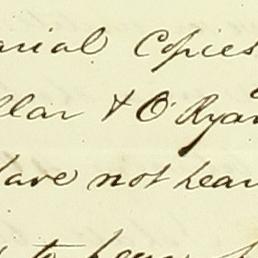 arial Copies
llar & O'Ryan
have not hear
to